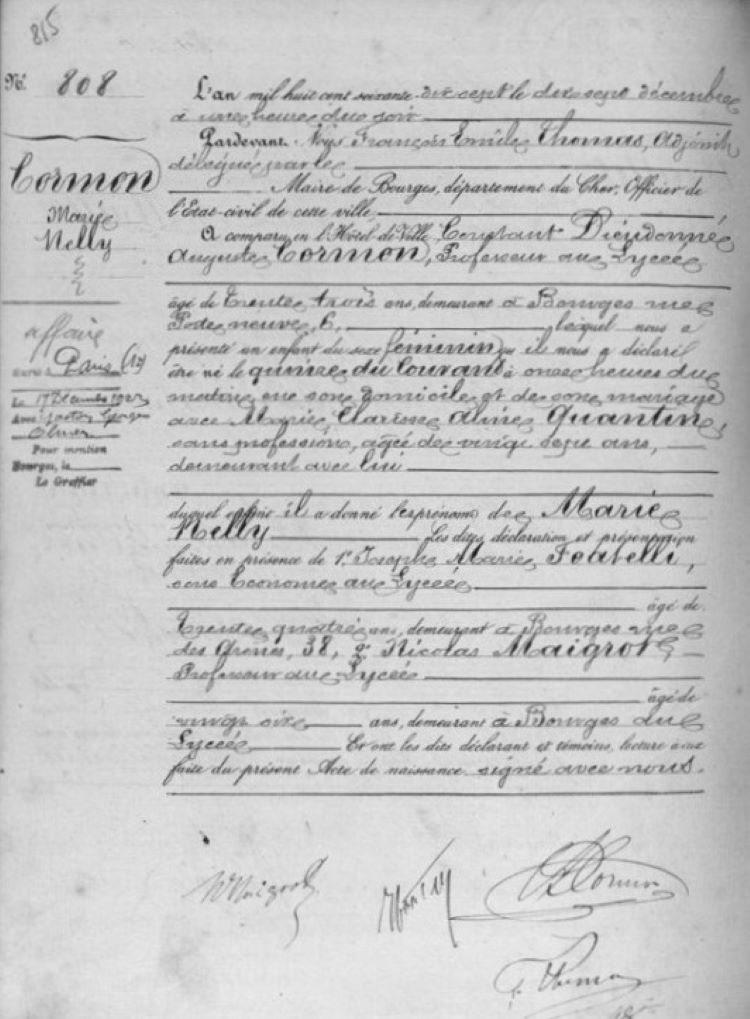 815
N°. 808
Cormon
Marie
Nelly
affaire
Paris (17)
Le 17 Décembre
Avec Gaston
Pour mention
Bourges, le
Le Greffier
L'an mil huit cent soixante-dix sept le dix sept décembre
à une heure du soir
Pardevant Nous François Emile Thomas, Adjoint
délégué par le
Maire de Bourges, département du Cher, Officier de
l'Etat-civil de cette ville
A comparu en l'Hôtel de Ville Constant Dieudonné
Auguste Cormon, Professeur au Lycée
âgé de Trente trois ans, demeurant à Bourges rue
Porte neuve, 6, lequel nous a
présenté un enfant du sexe féminin qu'il nous a déclaré
être né le quinze du Courant à onze heures du
matin, en son domicile et de son mariage
avec Marie Clarisse Aline Quantin,
sans profession, âgée de vingt sept ans,
demeurant avec lui
duquel enfant il a donné les prénoms de Marie
Nelly Les dites déclaration et présentation
faites en présence de 1° Joseph Marie
sous Econome au Lycée
âgé de
Trente quatre ans, demeurant à Bourges rue
des Arènes, 38, 2° Nicolas Maigrot,
Professeur au Lycée
âgé de
vingt six ans, demeurant à Bourges au
Lycée Et ont les dits déclarant et témoins, lecture à eux
faite du présent Acte de naissance signé avec nous.
N Maigrot
Cormon
E. Thomas